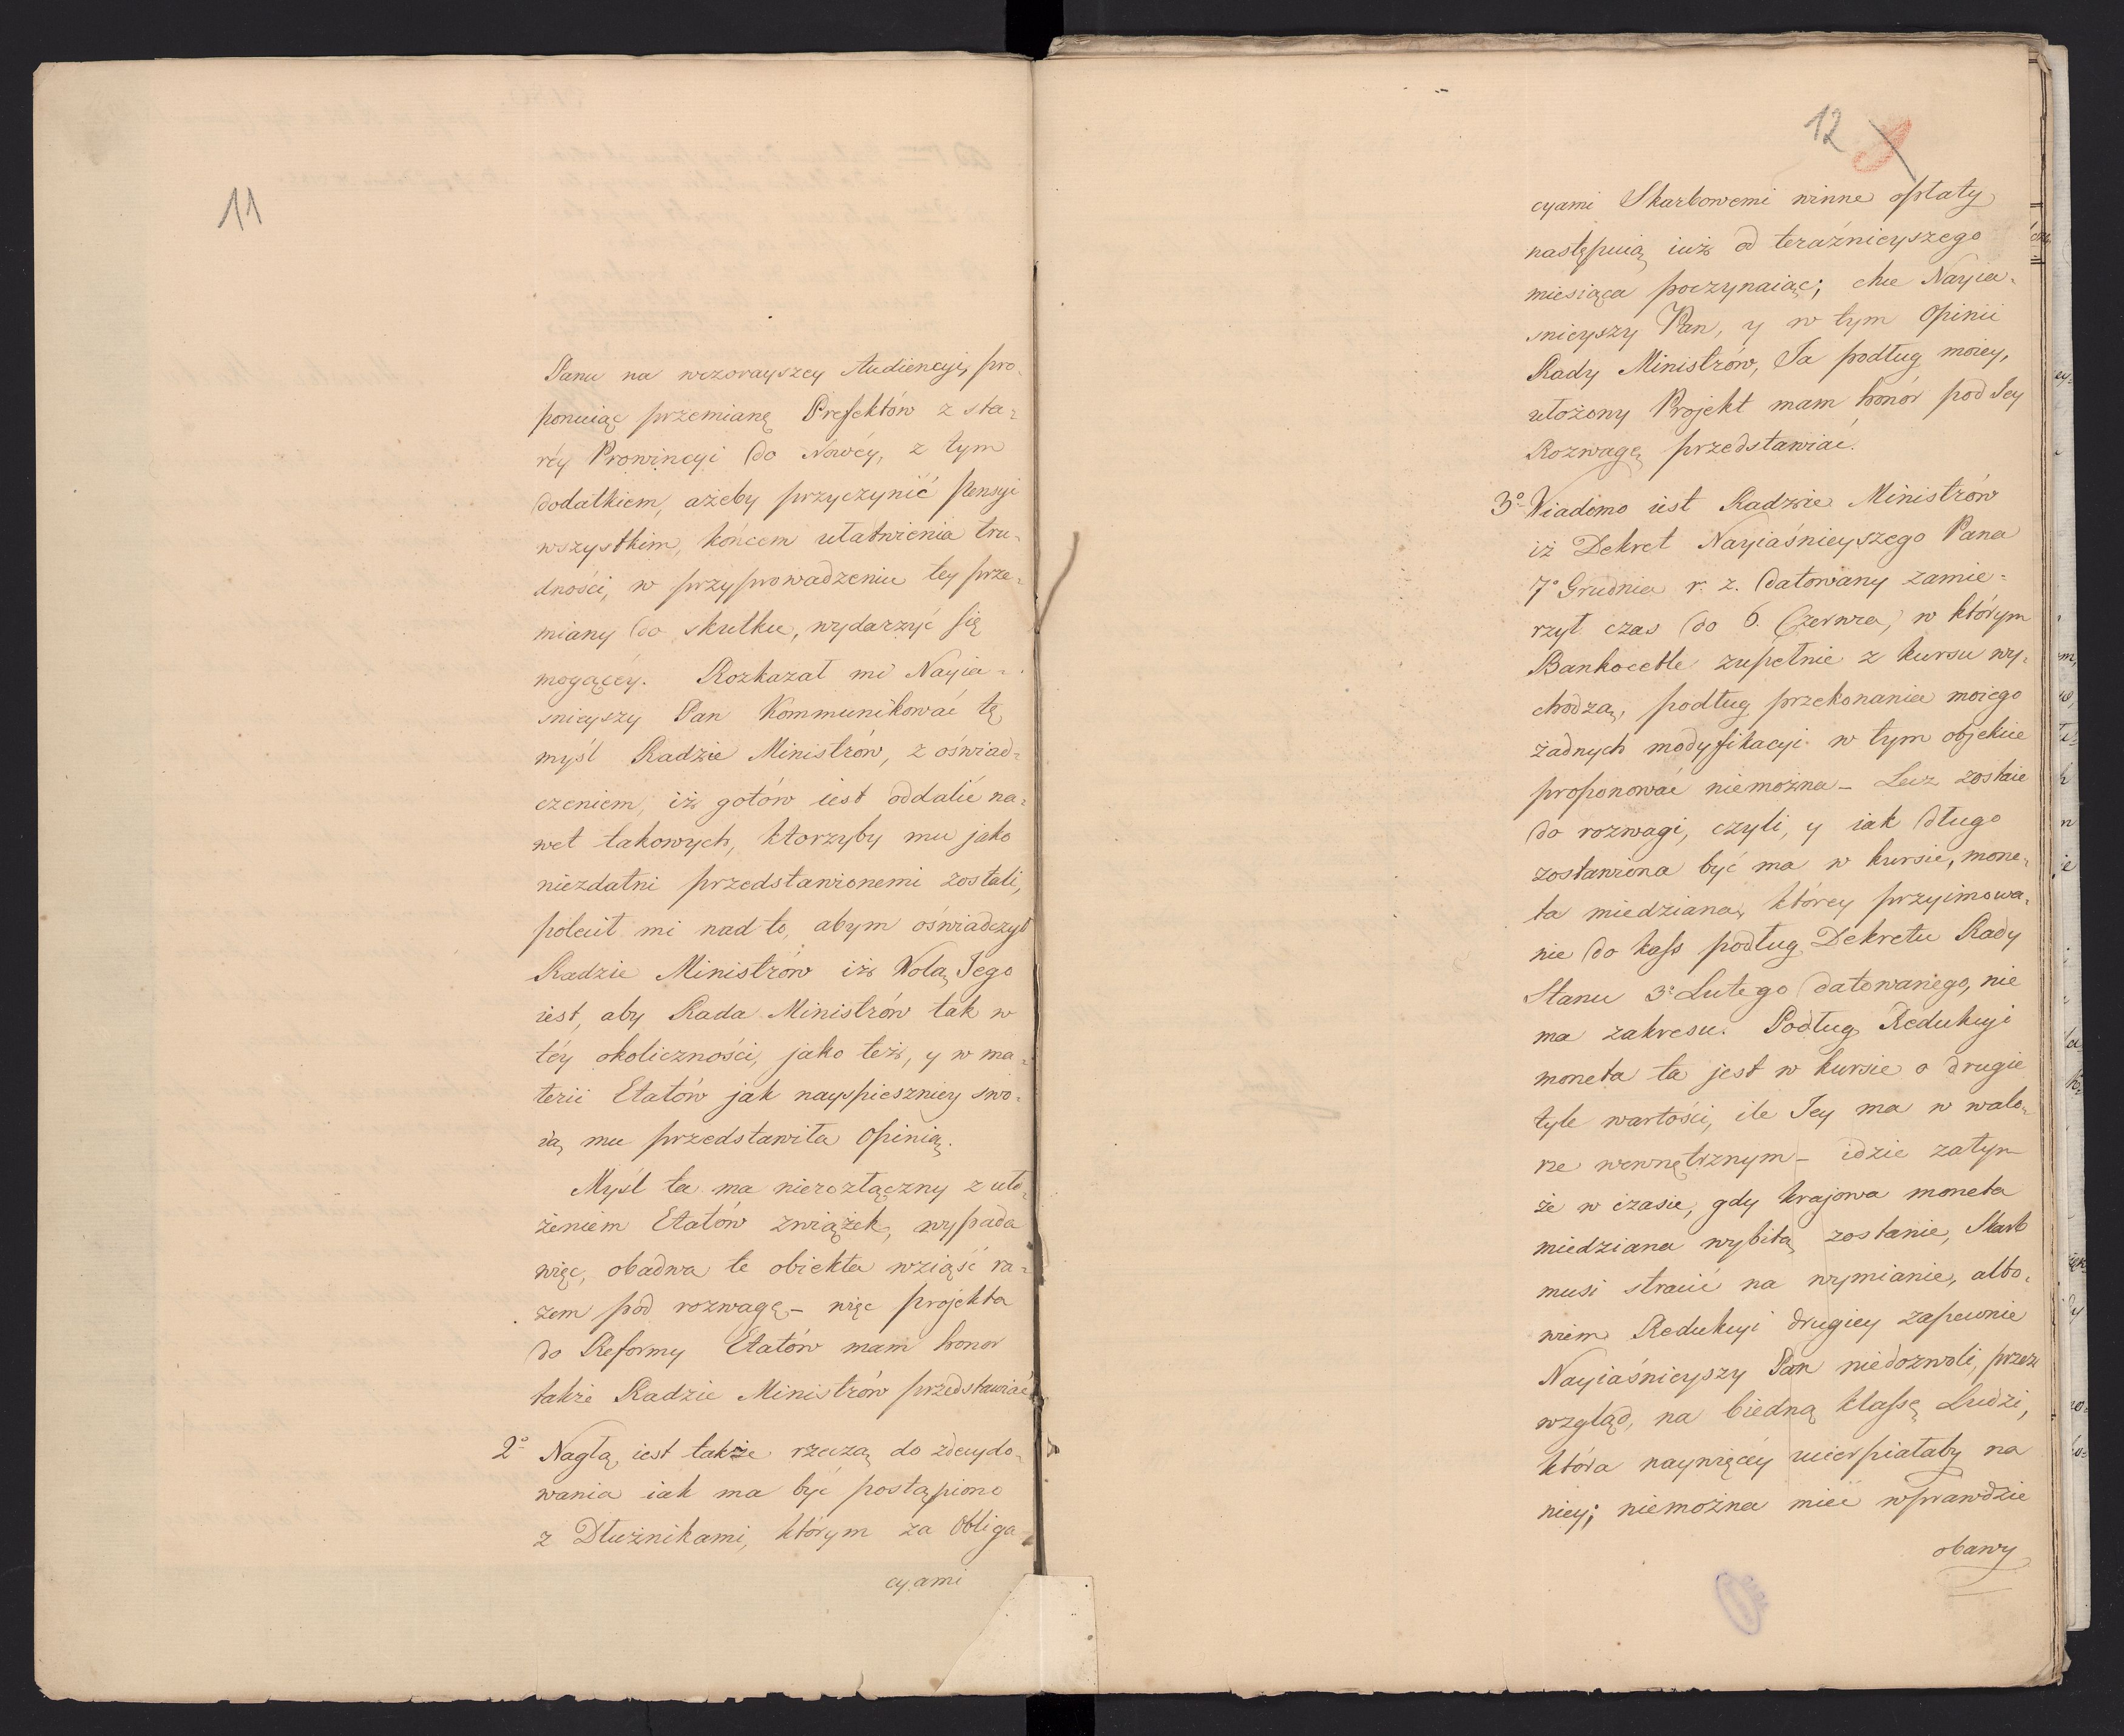 11
Panu na wczorayszey Audiencyi, pro-
ponuiąc przemianę Prefektów z sta-
réy Prowincyi do Nowéy, z tym
dodatkiem, ażeby przyczynić pensyi
wszystkim, końcem ułatwienia tru-
dności, w przyprowadzeniu tey prze-
miany do skutku, wydarzyć się
mogącéy. Rozkazał mi Nayia-
snieyszy Pan Kommunikować tę
myśl Radzie Ministrów, z oświad-
czeniem, iż gotów iest oddalić na-
wet takowych, ktorzyby mu jako
niezdatni przedstawionemi zostali,
polecił mi nad to, abym oświadczył
Radzie Ministrów iż Wolą Jego
iest, aby Rada Ministrów tak w
téy okoliczności, jako też, y w ma-
terii Etatów jak nayspieszniey swo-
ią mu przedstawiła Opinią.
Myśl ta ma nierozłączny z uło-
żeniem Etatów związek, wypada
więc, obadwa te obiekta wziąść ra-
zem pod rozwagę - więc projekta
do Reformy Etatów mam honor
także Radzie Ministrów przedstawiać
2° Nagłą iest także rzeczą do zdecydo-
wania iak ma być postąpiono
z Dłużnikami, którym za Obliga-
cyami
12
cyami Skarbowemi winne opłaty
następuią iuż od teraźnieyszego
miesiąca poczynaiąc; chce Nayia-
snieyszy Pan, y w tym Opinii
Rady Ministrów, Ja podług moiey,
ułożony Projekt mam honór pod Jey
Rozwagę przedstawiać.
3° Wiadomo iest Radzie Ministrów
iż Dekret Nayiaśnieyszego Pana
7° Grudnia r. z. datowany zamie-
rzył czas do 6. Czerwca, w którym
Bankocetle zupełnie z kursu wy-
chodzą, podług przekonania moiego
żadnych modyfikacyi w tym objekcie
proponować niemożna - Lecz zostaie
do rozwagi, czyli, y iak długo
zostawiona być ma w kursie, mone-
ta miedziana, którey przyimowa-
nie do kass podług Dekretu Rady
Stanu 3° Lutego datowanego, nie
ma zakresu. Podług Redukcyi
moneta ta jest w kursie o drugie
tyle wartości, ile Jey ma w walo-
rze wewnętrznym - idzie zatym
że w czasie, gdy krajowa moneta
miedziana wybitą zostanie, Skarb
musi stracić na wymianie, albo-
wiem Redukcyi drugiey zapewnie
Nayiaśnieyszy Pan niedozwoli, przez
wzgląd, na biedną klassę Ludzi,
która naywięcéy ucierpiałaby na
niey; niemożna mieć wprawdzie
obawy